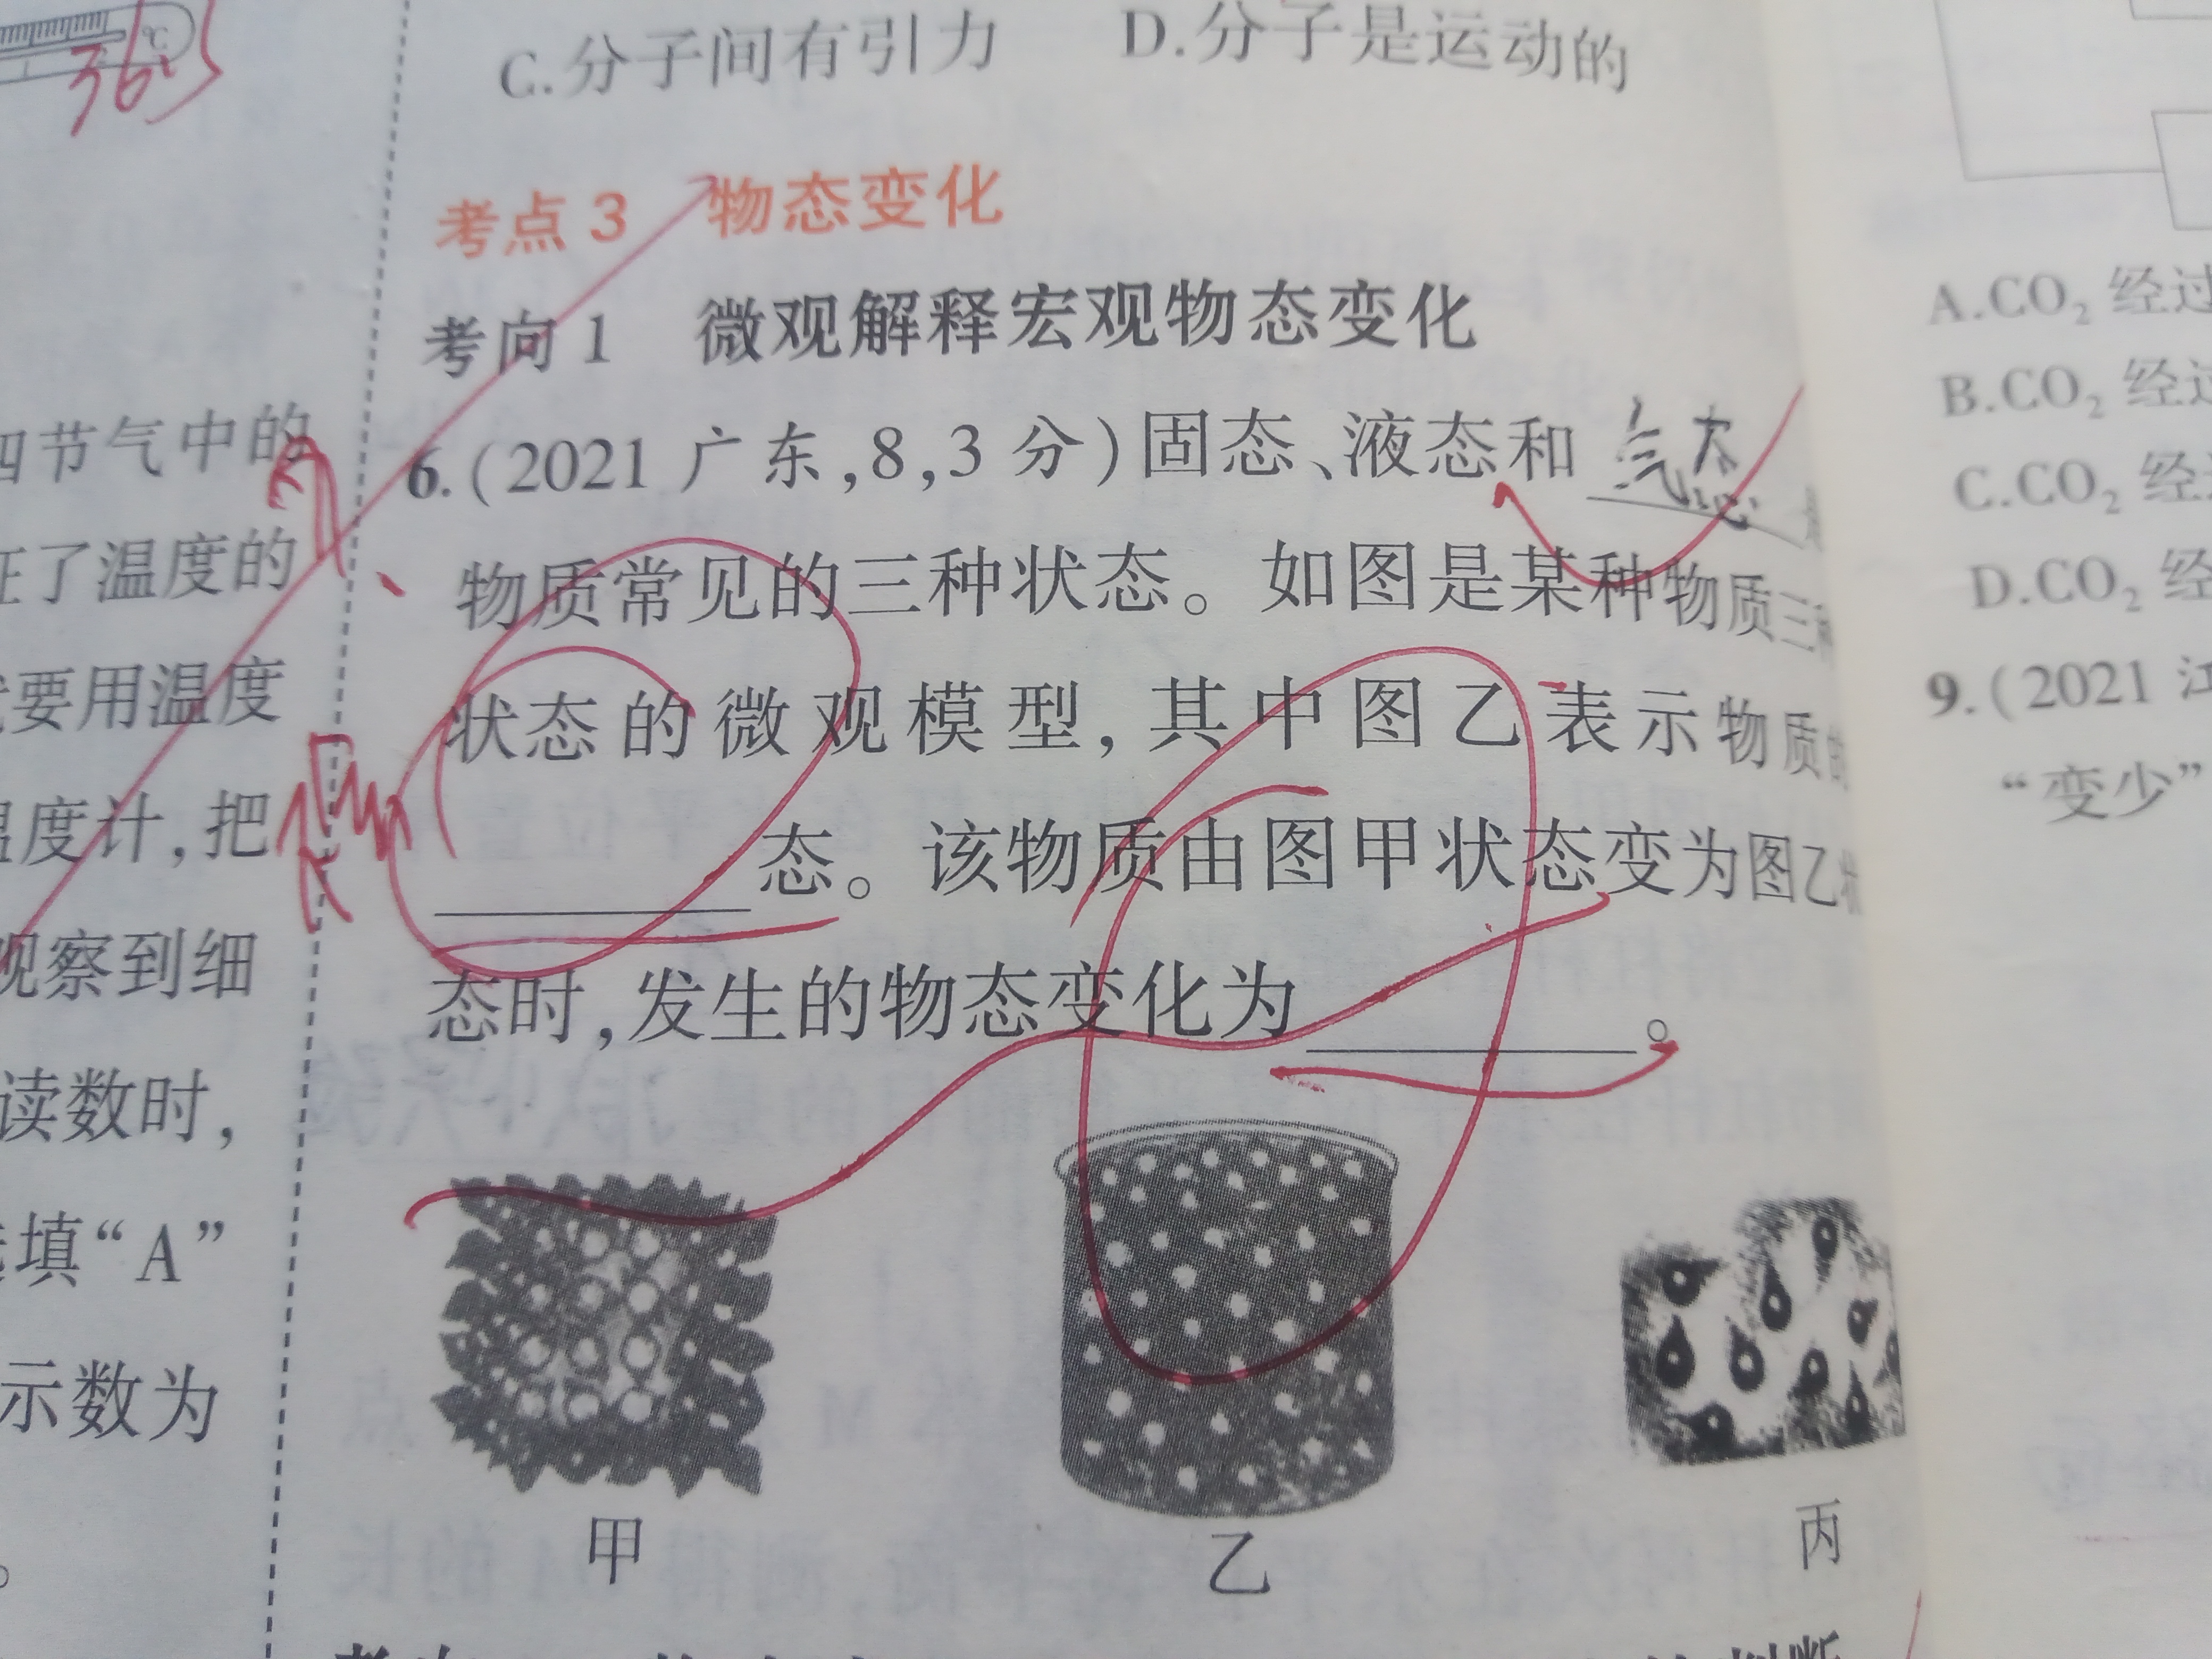 36.5
℃
四节气中的
证了温度的
要用温度
温度计,把
观察到细
读数时,
填“A”
示数为
。
C.分子间有引力 D.分子是运动的
考点3 物态变化
考向1 微观解释宏观物态变化
6.(2021广东,8,3分)固态、液态和 气态 是
物质常见的三种状态。如图是某种物质三种
状态的微观模型,其中图乙表示物质的
态。该物质由图甲状态变为图乙状
态时,发生的物态变化为 。
甲
乙
丙
A.CO₂经过
B.CO₂经过
C.CO₂经过
D.CO₂经
9.(2021江
“变少”